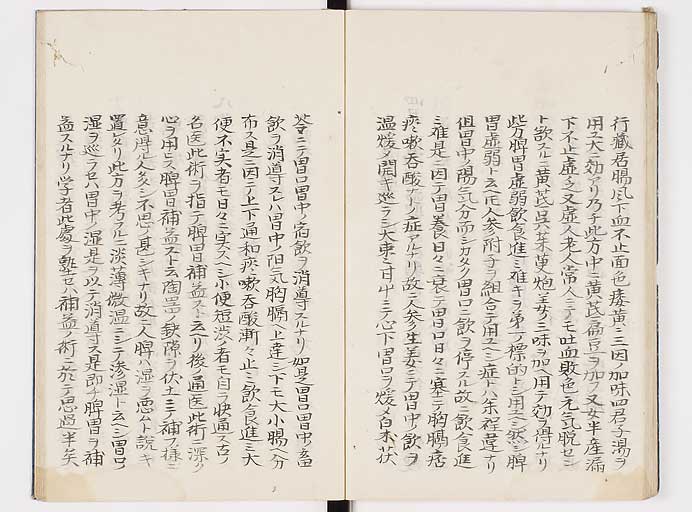 行蔵居腸風下血不止面色痿黄ニ三因ノ加味四君子湯ヲ
用ユ大ニ効アリ乃チ此方中ニ黄芪扁豆ヲ加フ又女半産漏
下不止虚乏又虚人老人常人ニテモ吐血敗色元気脱セン
ト欲スルニ黄芪呉茱萸炮姜ノ三味ヲ加ヘ用テ効ヲ得ルナリ
此方脾胃虚弱飲食進ミ難キヲ第一ノ標的トシ用ユヘシ然シ脾
胃虚弱ト云ヘ人参附子ヲ組合テ用ユヘシ症トハ未程違ナリ
但胃中ノ陽気分布シカタク胃口ニ飲ヲ停スル故ニ飲食進
ミ難是ニ因テ胃養日々ニ衰テ胃口日々ニ塞テ胸膈痞
痰嗽呑酸ナトノ症アルナリ故ニ人参生姜ニテ胃中ノ飲ヲ
温煖メ開キ巡ラシ大棗ト甘艸ニテ心下胃口ヲ煖メ白朮茯
苓ニテ胃口胃中ノ宿飲ヲ消導スルナリ如是胃口胃中ノ畜
飲ヲ消導スレハ胃中ノ阳気胸膈ヘ上達シ下モ大小腸ヘ分
布ス是ニ因テ上下通和痰嗽呑酸漸々止ミ飲食進ミ大
便不実者モ日々ニ実スヘシ小便短渋ノ者モ自ラ快通ス古ノ
名医此術ヲ指テ脾胃補益スト云リ後ノ通医此術ニ深ク
心ヲ用ヒス脾胃補益スト云陶器ノ鈌隙ヲ伏土ニテ補フ様ニ
意得ル人多シ不思ノ甚シキナリ故ニ人脾ハ湿ヲ悪ムト説キ
置レタリ此方ヲ考フルニ淡薄微温ニシテ滲湿ト云ヘシ胃口ノ
湿ヲ巡ラセハ胃中ノ湿是ヲ以テ消導ス是即チ脾胃ヲ補
益スルナリ学者此處ヲ熟セハ補益ノ術ニ於テ思過半矣